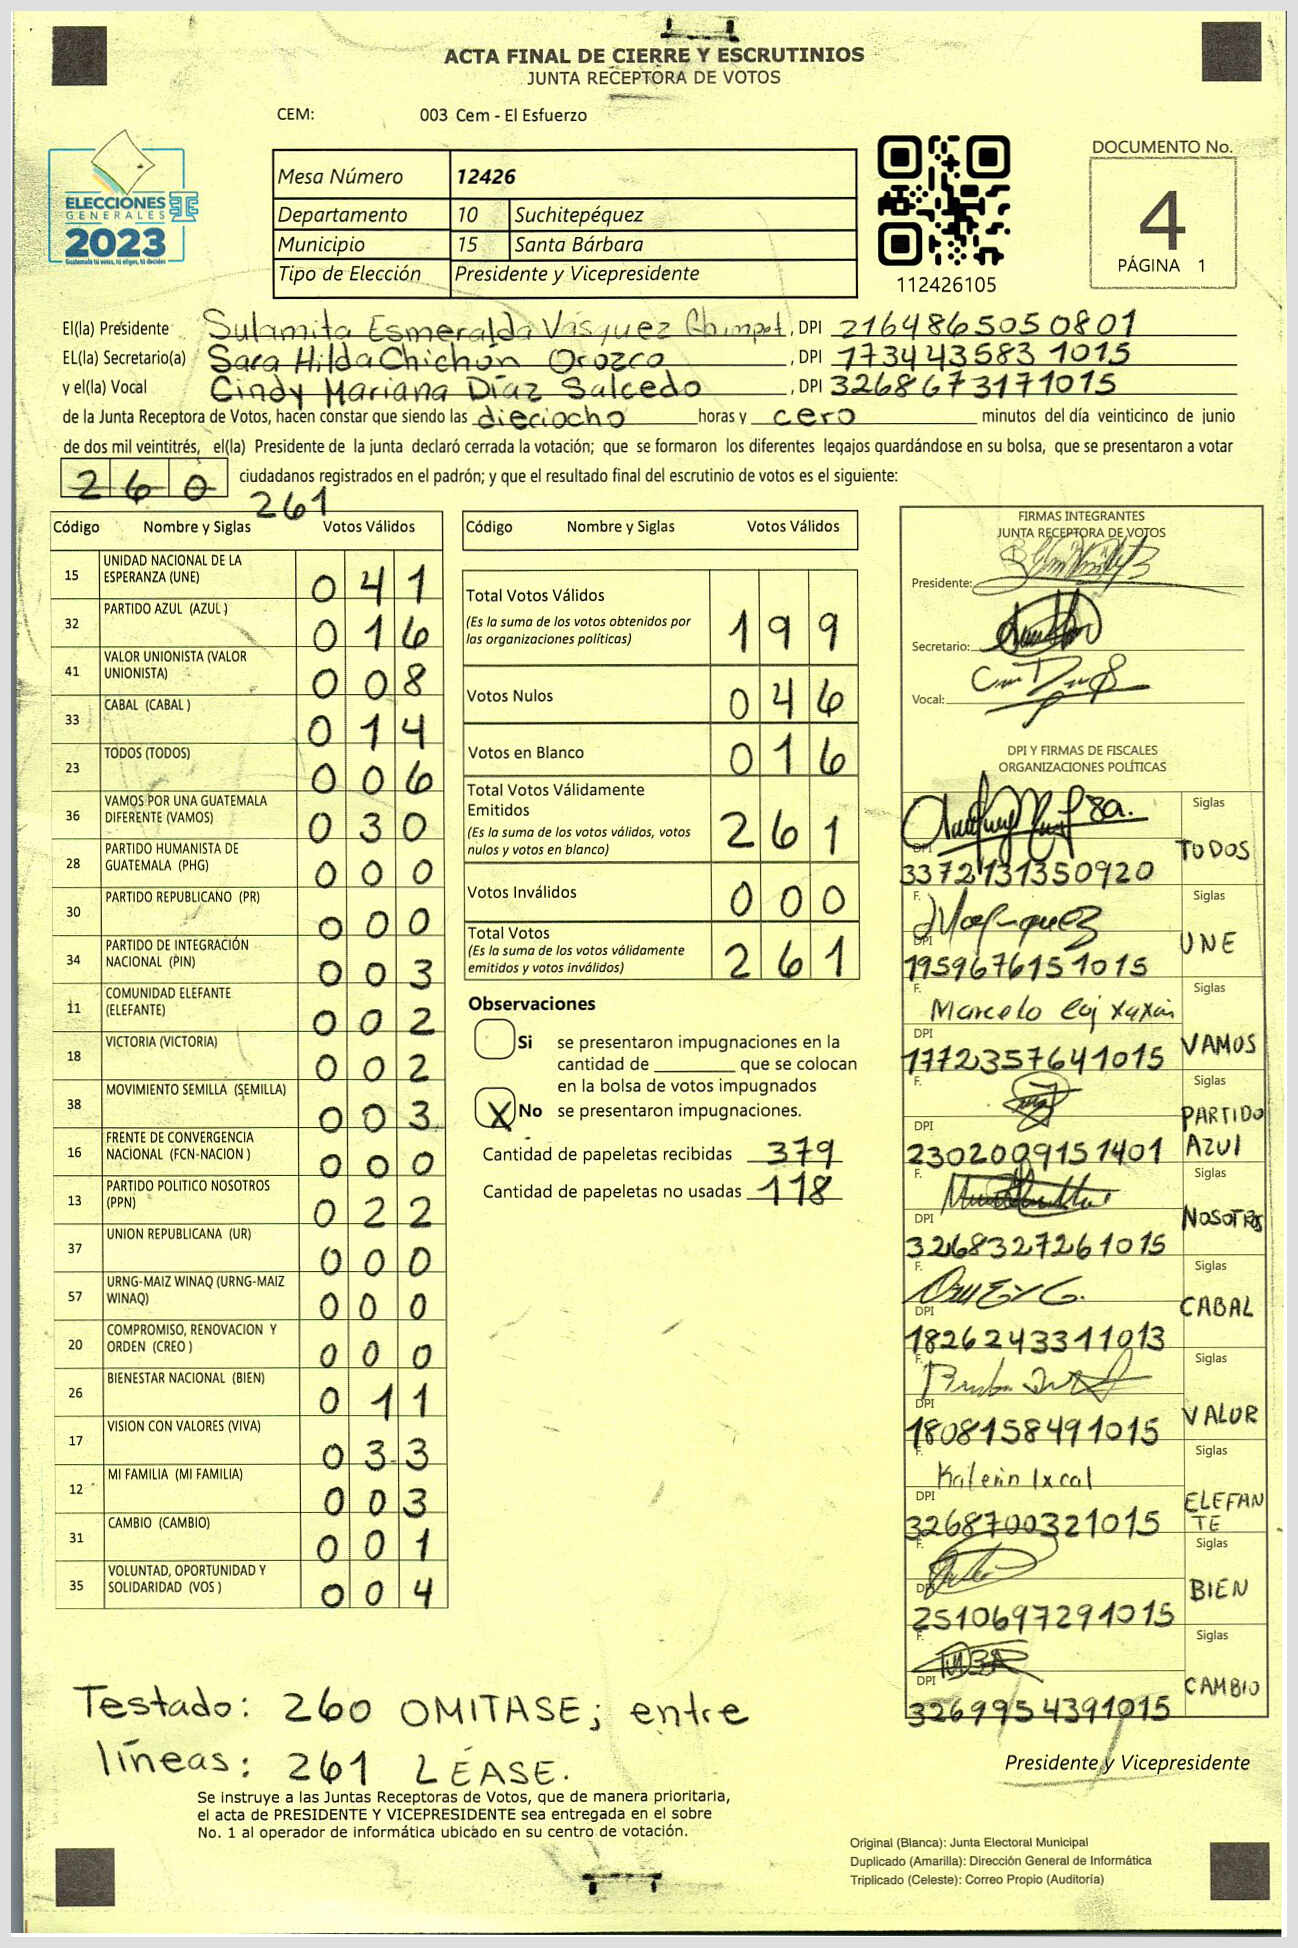 ACTA FINAL DE CIERRE Y ESCRUTINIOS
JUNTA RECEPTORA DE VOTOS
CEM: 003 Cem - El Esfuerzo
ELECCIONES
GENERALES
2023
Guatemala tú votas, tú eliges, tú decides
Mesa Número 12426
Departamento 10 Suchitepéquez
Municipio 15 Santa Bárbara
Tipo de Elección Presidente y Vicepresidente
112426105
DOCUMENTO No.
4
PÁGINA 1
El(la) Presidente Sulamita Esmeralda Vásquez , DPI 2164865050801
EL(la) Secretario(a) Sara Hilda Chichón Orozco , DPI 1734435831015
y el(la) Vocal Cindy Mariana Díaz Salcedo , DPI 3268673171015
de la Junta Receptora de Votos, hacen constar que siendo las dieciocho horas y cero minutos del día veinticinco de junio
de dos mil veintitrés, el(la) Presidente de la junta declaró cerrada la votación; que se formaron los diferentes legajos guardándose en su bolsa, que se presentaron a votar
260 ciudadanos registrados en el padrón; y que el resultado final del escrutinio de votos es el siguiente:
261
Código Nombre y Siglas Votos Válidos
15 UNIDAD NACIONAL DE LA ESPERANZA (UNE) 041
32 PARTIDO AZUL (AZUL ) 016
41 VALOR UNIONISTA (VALOR UNIONISTA) 008
33 CABAL (CABAL ) 014
23 TODOS (TODOS) 006
36 VAMOS POR UNA GUATEMALA DIFERENTE (VAMOS) 030
28 PARTIDO HUMANISTA DE GUATEMALA (PHG) 000
30 PARTIDO REPUBLICANO (PR) 000
34 PARTIDO DE INTEGRACIÓN NACIONAL (PIN) 003
11 COMUNIDAD ELEFANTE (ELEFANTE) 002
18 VICTORIA (VICTORIA) 002
38 MOVIMIENTO SEMILLA (SEMILLA) 003
16 FRENTE DE CONVERGENCIA NACIONAL (FCN-NACION ) 000
13 PARTIDO POLITICO NOSOTROS (PPN) 022
37 UNION REPUBLICANA (UR) 000
57 URNG-MAIZ WINAQ (URNG-MAIZ WINAQ) 000
20 COMPROMISO, RENOVACION Y ORDEN (CREO ) 000
26 BIENESTAR NACIONAL (BIEN) 011
17 VISION CON VALORES (VIVA) 033
12 MI FAMILIA (MI FAMILIA) 003
31 CAMBIO (CAMBIO) 001
35 VOLUNTAD, OPORTUNIDAD Y SOLIDARIDAD (VOS ) 004
Código Nombre y Siglas Votos Válidos
Total Votos Válidos 199
(Es la suma de los votos obtenidos por
las organizaciones políticas)
Votos Nulos 046
Votos en Blanco 016
Total Votos Válidamente
Emitidos 261
(Es la suma de los votos válidos, votos
nulos y votos en blanco)
Votos Inválidos 000
Total Votos 261
(Es la suma de los votos válidamente
emitidos y votos inválidos)
Observaciones
Si se presentaron impugnaciones en la
cantidad de ________ que se colocan
en la bolsa de votos impugnados
X No se presentaron impugnaciones.
Cantidad de papeletas recibidas 379
Cantidad de papeletas no usadas 118
FIRMAS INTEGRANTES
JUNTA RECEPTORA DE VOTOS
Presidente:
Secretario:
Vocal:
DPI Y FIRMAS DE FISCALES
ORGANIZACIONES POLÍTICAS
Siglas
TODOS
DPI
3372131350920
F.
Siglas
UNE
DPI
1959676151015
F. Marcelo
Siglas
VAMOS
DPI
1772357641015
F.
Siglas
PARTIDO
AZUL
DPI
2302009151401
F.
Siglas
NOSOTROS
DPI
3268327261015
F.
Siglas
CABAL
DPI
1826243311013
F.
Siglas
VALOR
DPI
1808158491015
F. Katerin Ixcal
Siglas
ELEFAN
TE
DPI
3268700321015
F.
Siglas
BIEN
DPI
2510697291015
F.
Siglas
CAMBIO
DPI
3269954391015
Presidente y Vicepresidente
Testado: 260 OMITASE; entre
líneas: 261 LÉASE.
Se instruye a las Juntas Receptoras de Votos, que de manera prioritaria,
el acta de PRESIDENTE Y VICEPRESIDENTE sea entregada en el sobre
No. 1 al operador de informática ubicado en su centro de votación.
Original (Blanca): Junta Electoral Municipal
Duplicado (Amarilla): Dirección General de Informática
Triplicado (Celeste): Correo Propio (Auditoría)